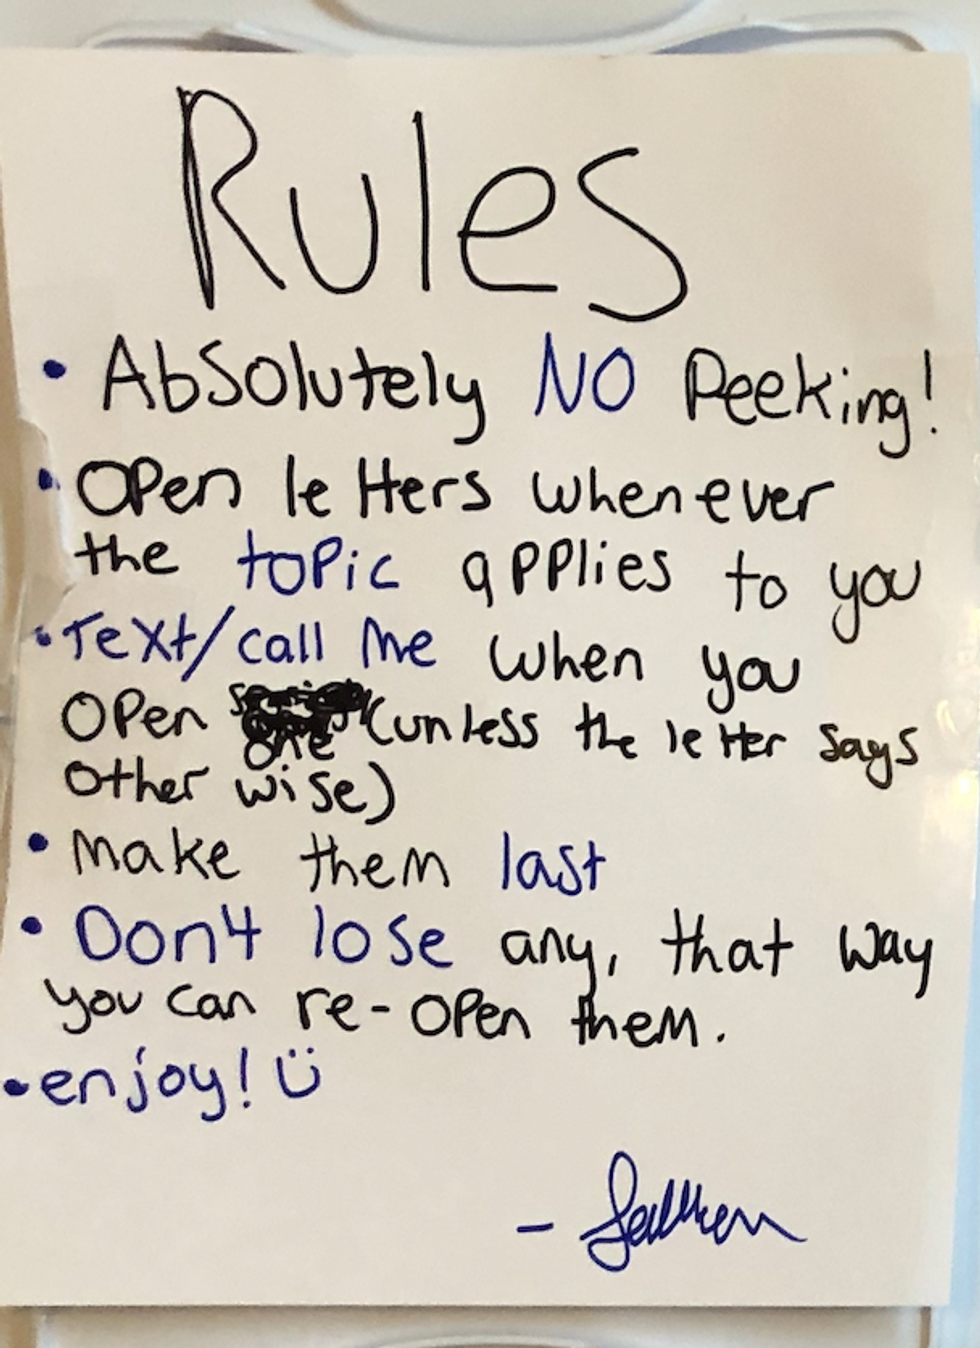 Rules
• Absolutely NO Peeking!
• Open letters whenever
the topic applies to you
• Text/call me when you
open one (unless the letter says
other wise)
• Make them last
• Don't lose any, that way
you can re-open them.
• enjoy! Ü